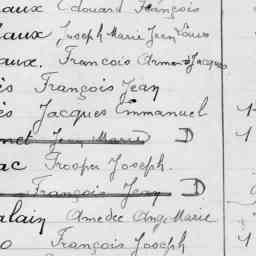 aux Edouard François
aux Joseph Marie Jean Louis
aux. Francois Armand Jacques
ès François Jean
ès Jacques Emmanuel 1
net Jean Marie D 1
ac Prosper Joseph.
François Jean D
alain Amedee Ange Marie
o François Joseph 1